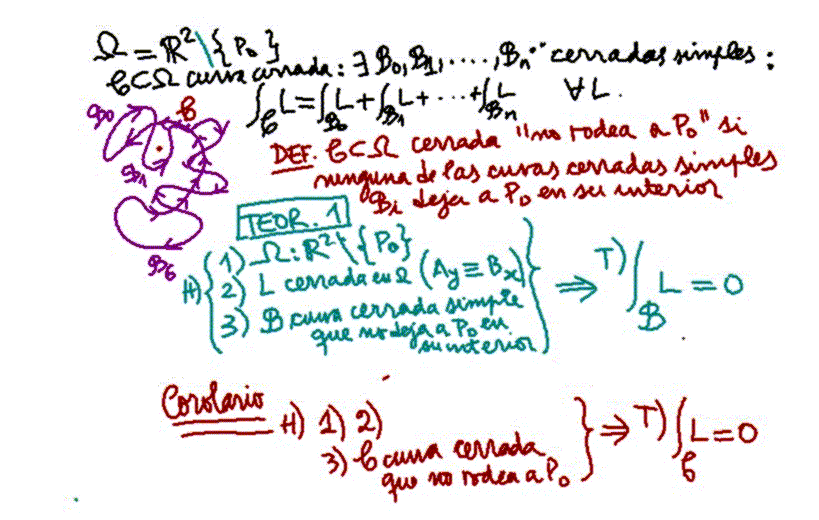 Ω = ℝ² \ {P₀}
𝒞 ⊂ Ω curva cerrada: ∃ B₀, B₁, ....., Bₙ cerradas simples:
∫_𝒞 L = ∫_B₀ L + ∫_B₁ L + ... + ∫_Bₙ L ∀ L.
B₀ 𝒞
B₁
B₆
DEF. 𝒞 ⊂ Ω cerrada "no rodea a P₀" si
ninguna de las curvas cerradas simples
Bᵢ deja a P₀ en su interior
TEOR. 1
H) { 1) Ω: ℝ² \ {P₀}
2) L cerrada en Ω (Ay ≡ Bx) } ⟹ T) ∫_B L = 0
3) B curva cerrada simple
que no deja a P₀ en
su interior
Corolario H) 1) 2)
3) 𝒞 curva cerrada } ⟹ T) ∫_𝒞 L = 0
que no rodea a P₀